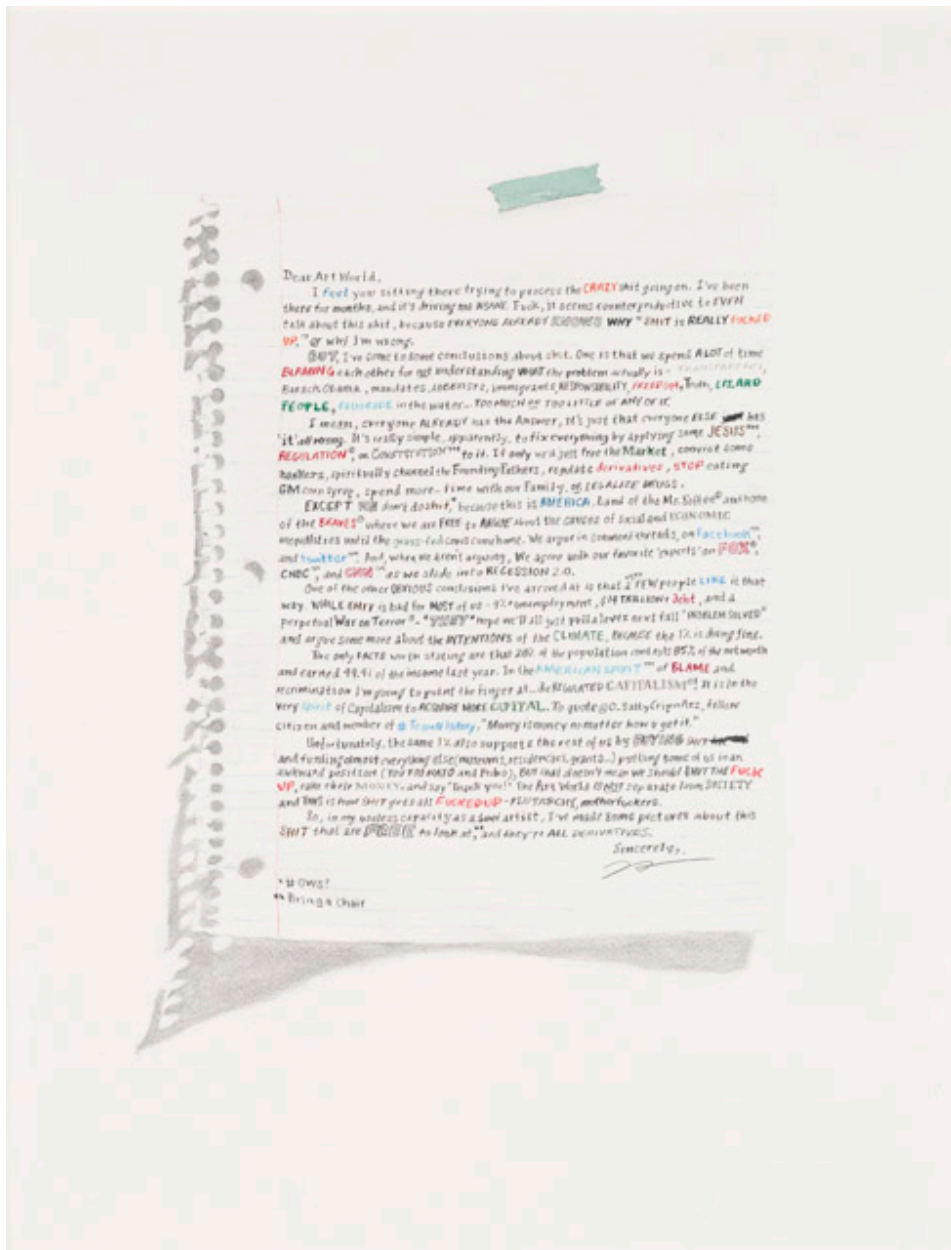 Dear Art World,
I feel you sitting there trying to process the CRAZY shit going on. I've been
there for months, and it's driving me INSANE. Fuck, it seems counterproductive to EVEN
talk about this shit, because EVERYONE ALREADY KNOWS WHY "SHIT is REALLY FUCKED
UP," or why I'm wrong.
BUT, I've come to some conclusions about shit. One is that we spend A LOT of time
BLAMING each other for not understanding WHAT the problem actually is -
Barack Obama, mandates, immigrants, RESPONSIBILITY, FREEDOM, Truth, LIZARD
PEOPLE, FLUORIDE in the water... TOO MUCH OR TOO LITTLE OF ANY OF IT.
I mean, everyone ALREADY has the Answer, it's just that everyone ELSE has
'it' all wrong. It's really simple, apparently, to fix everything by applying some JESUS™,
REGULATION®, or CONSTITUTION™ to it. If only we'd just free the Market, convict some
bankers, spiritually channel the Founding Fathers, regulate derivatives, STOP eating
GM corn syrup, spend more time with our Family, or LEGALIZE DRUGS.
EXCEPT WE don't do shit,* because this is AMERICA, Land of the Mr. Softee® and home
of the BRAVES® where we are FREE to ARGUE about the causes of Social and ECONOMIC
inequalities until the grass-fed cows come home. We argue in comment threads, on facebook™,
and twitter™. And, when we aren't arguing, We agree with our favorite 'experts' on FOX®,
CNBC™, and CNN™ as we slide into RECESSION 2.0.
One of the other OBVIOUS conclusions I've arrived at is that a FEW people LIKE it that
way. WHILE SHIT is bad for MOST of us - 9% unemployment, $14 TRILLION+ Debt, and a
perpetual War on Terror® - hope we'll all just pull a lever next fall "PROBLEM SOLVED"
and argue some more about the INTENTIONS of the CLIMATE, BECAUSE the 1% is doing fine.
The only FACTS worth stating are that 20% of the population controls 85% of the net worth
and earned 49.4% of the income last year. In the AMERICAN SPIRIT™ of BLAME and
recrimination I'm going to point the finger at... DeREGULATED CAPITALISM®! It is in the
very Spirit of Capitalism to ACQUIRE MORE CAPITAL. To quote @O.SaltyCripn fez, fellow
citizen and member of "Money is money no matter how u get it."
Unfortunately, the same 1% also supports the rest of us by BUYING SHIT
and funding almost everything else (museums, residencies, grants...) putting some of us in an
awkward position (YOU TOO MATO and Pedro), BUT that doesn't mean we should SHUT THE FUCK
UP, take their MONEY, and say "Thank you!" The Art World IS NOT separate from SOCIETY
and THIS is how SHIT gets all FUCKED UP - PLUTARCHY, motherfuckers.
So, in my useless capacity as a artist, I've made some pictures about this
SHIT that are to look at,** and they're ALL DERIVATIVES.
Sincerely,
*# OWS!
** Bring a Chair